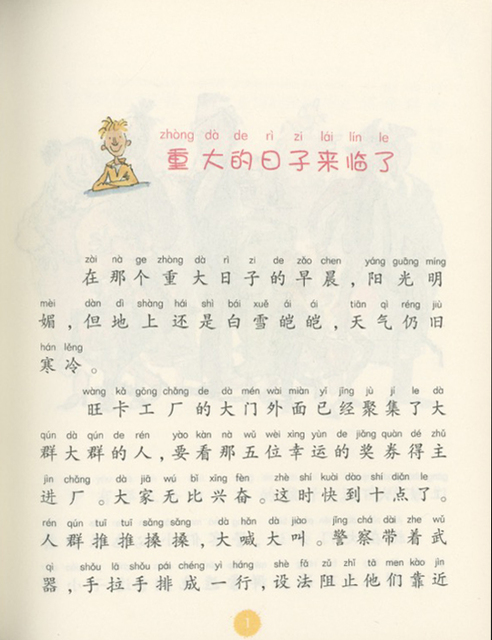 zhòng dà de rì zi lái lín le
重大的日子来临了
zài nà ge zhòng dà rì zi de zǎo chen yáng guāng míng
在那个重大日子的早晨，阳光明
mèi dàn dì shàng hái shì bái xuě ái ái tiān qì réng jiù
媚，但地上还是白雪皑皑，天气仍旧
hán lěng
寒冷。
wàng kǎ gōng chǎng de dà mén wài miàn yǐ jīng jù jí le dà
旺卡工厂的大门外面已经聚集了大
qún dà qún de rén yào kàn nà wǔ wèi xìng yùn de jiǎng quàn dé zhǔ
群大群的人，要看那五位幸运的奖券得主
jìn chǎng dà jiā wú bǐ xīng fèn zhè shí kuài dào shí diǎn le
进厂。大家无比兴奋。这时快到十点了。
rén qún tuī tuī sǎng sǎng dà hǎn dà jiào jǐng chá dài zhe wǔ
人群推推搡搡，大喊大叫。警察带着武
qì shǒu lā shǒu pái chéng yì háng shè fǎ zǔ zhǐ tā men kào jìn
器，手拉手排成一行，设法阻止他们靠近
1